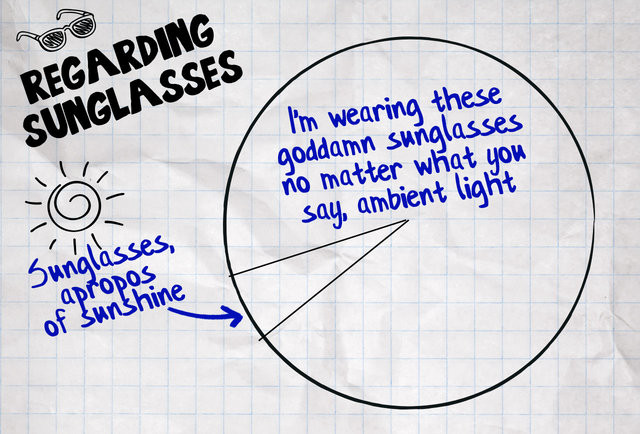 REGARDING
SUNGLASSES
I'm wearing these
goddamn sunglasses
no matter what you
say, ambient light
Sunglasses,
apropos
of sunshine